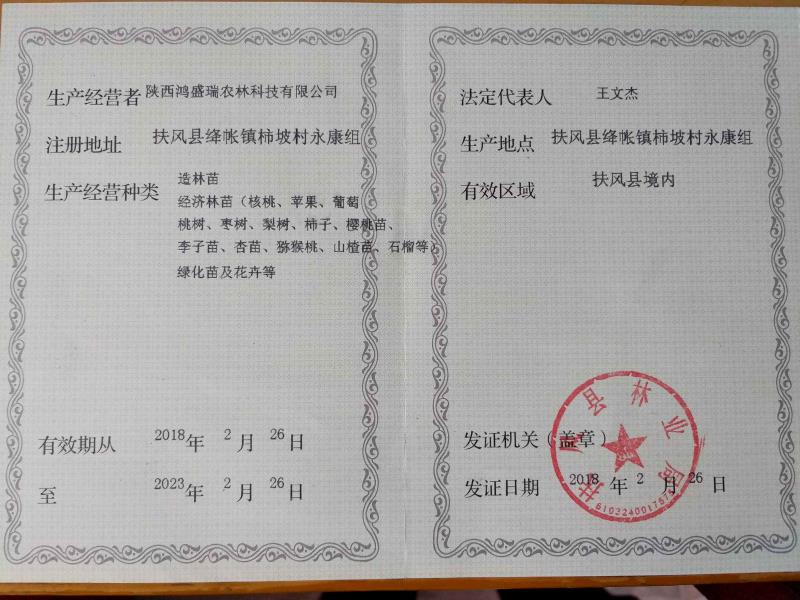 生产经营者 陕西鸿盛瑞农林科技有限公司
注册地址 扶风县绛帐镇柿坡村永康组
生产经营种类 造林苗
经济林苗（核桃、苹果、葡萄
桃树、枣树、梨树、柿子、樱桃苗、
李子苗、杏苗、猕猴桃、山楂苗、石榴等）
绿化苗及花卉等
有效期从 2018年 2 月 26日
至 2023年 2 月 26日
法定代表人 王文杰
生产地点 扶风县绛帐镇柿坡村永康组
有效区域 扶风县境内
发证机关（盖章）
发证日期 2018 年 2 月 26 日
扶风县林业局